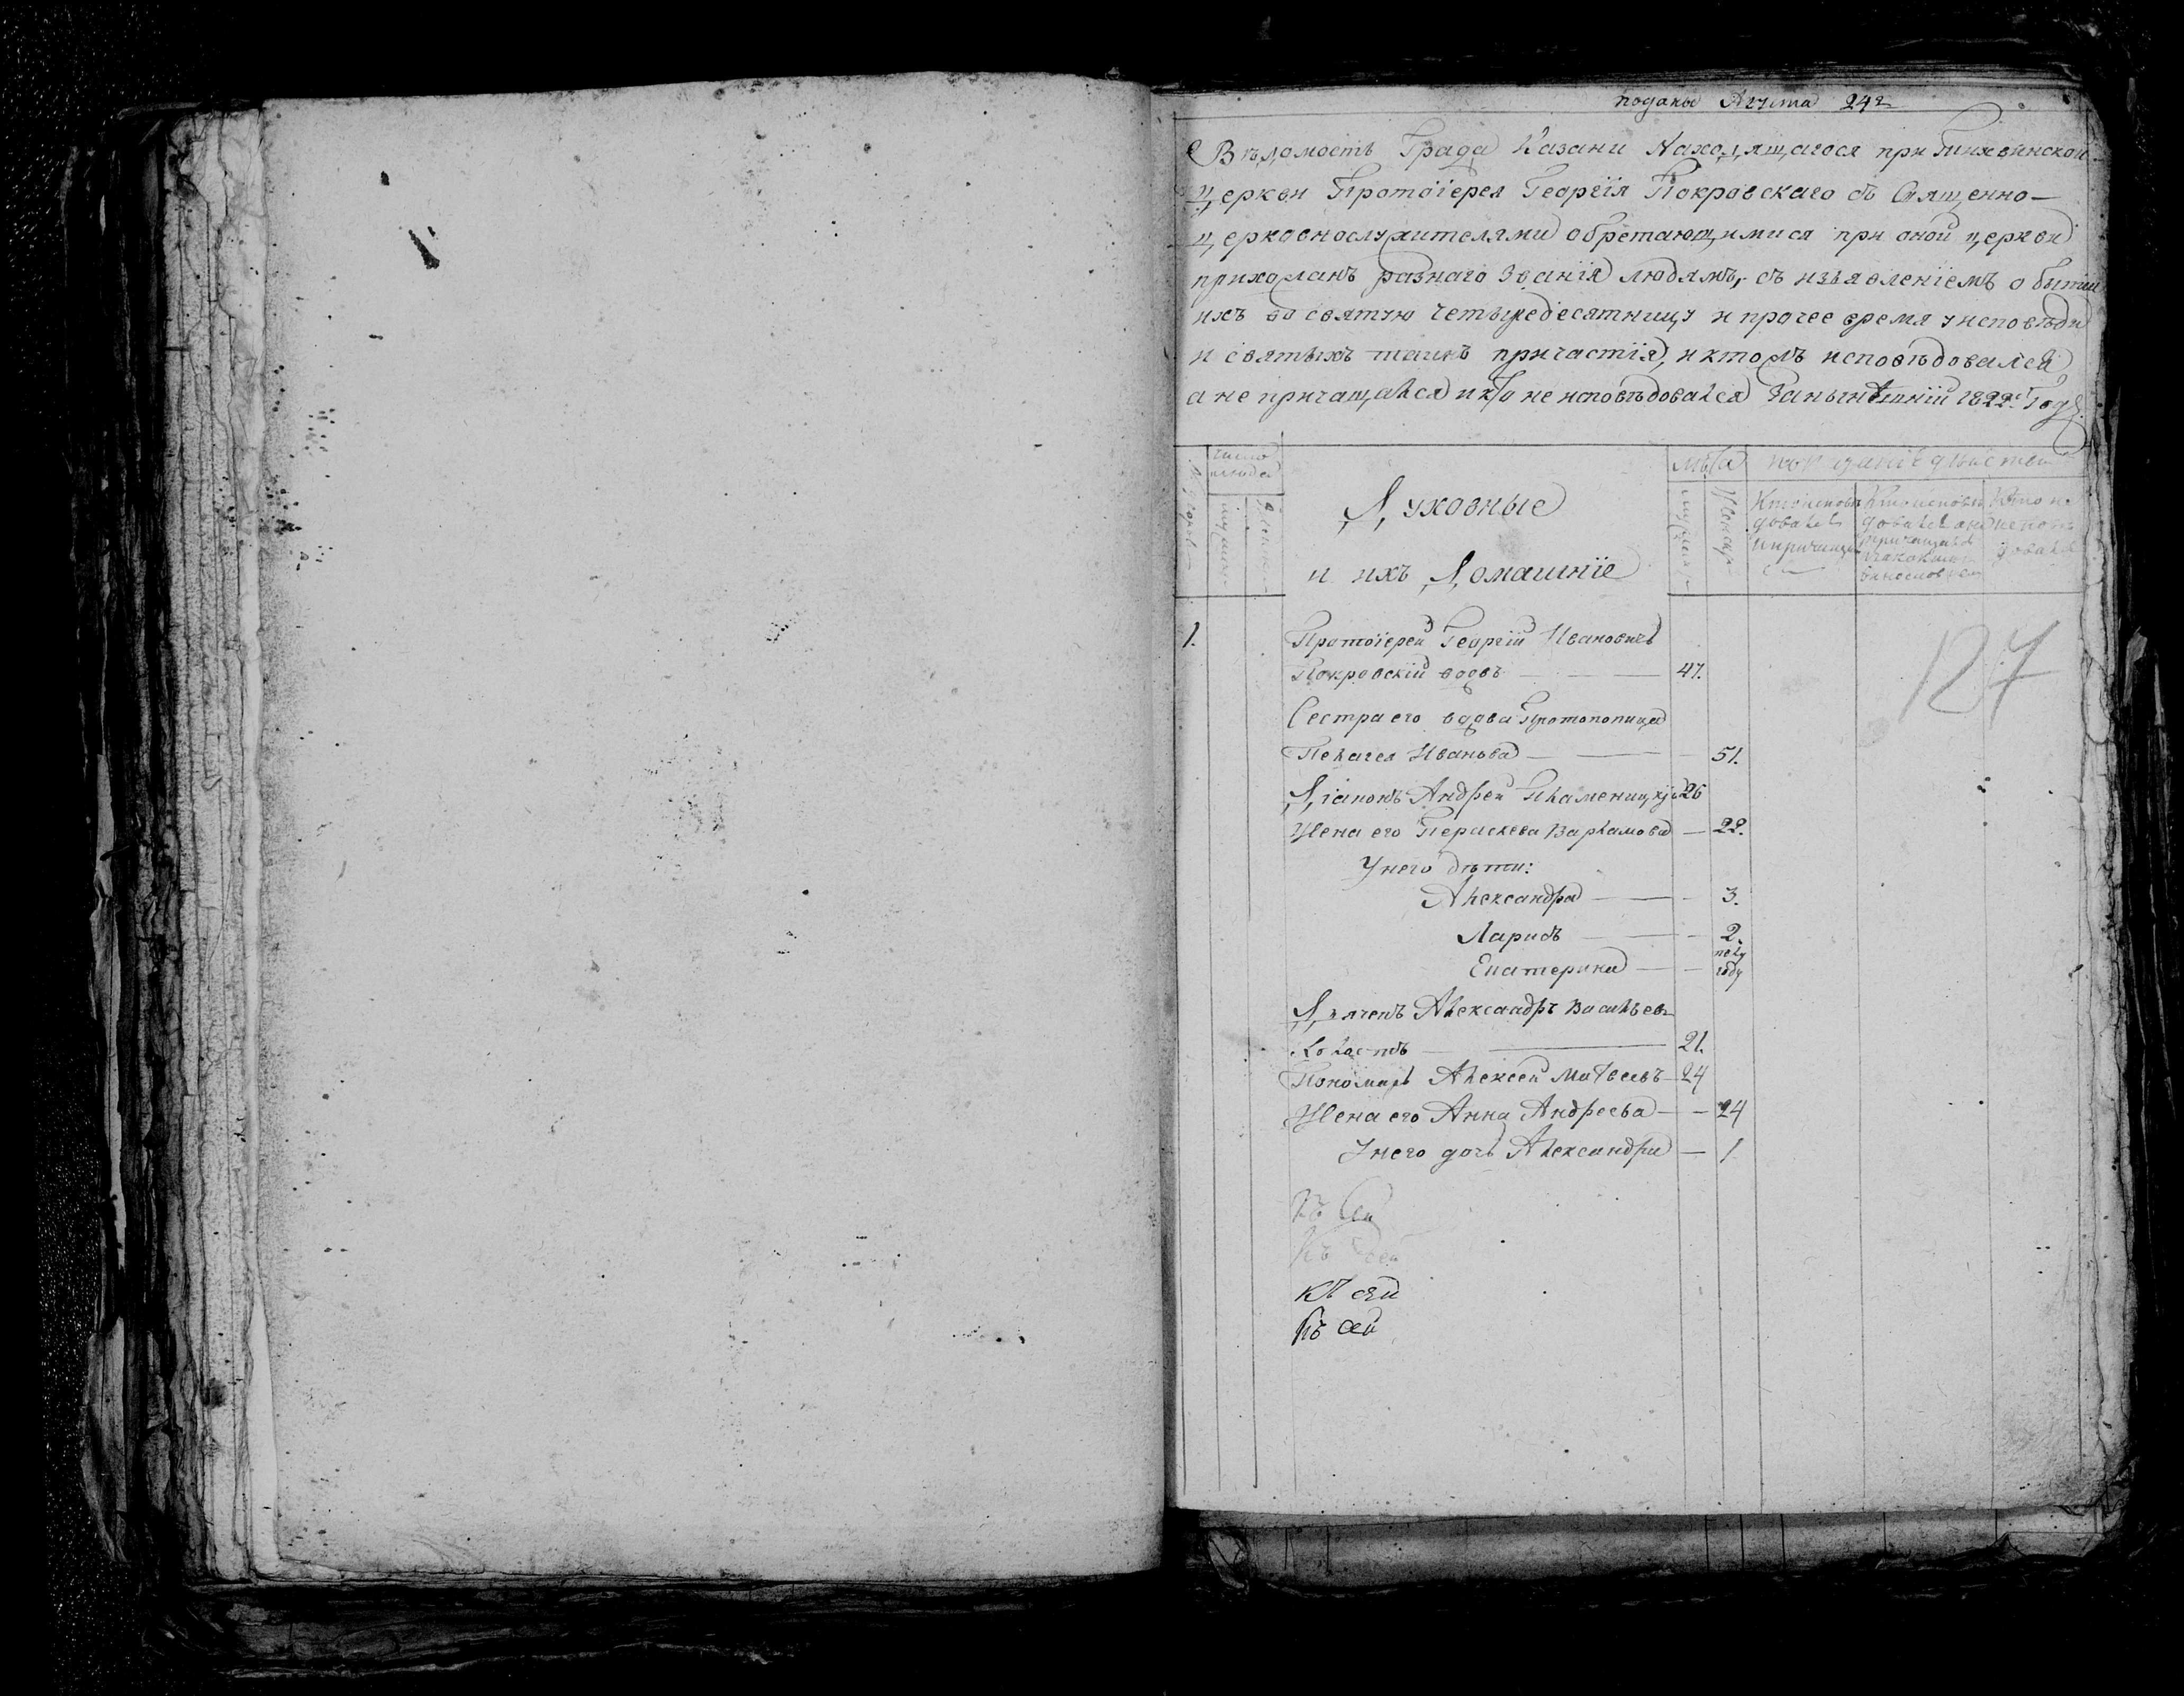 поданы Августа 24го
Вѣдомость Града Казани Находящагося при Тихвинской
Церкви Протоіерея Георгія Покровскаго съ Священно-
церковнослужителями обретающимися при оной церкви
прихожанъ разнаго Званія людямъ, съ изъявленіемъ о бытіи
ихъ во святую четыредесятницу и прочее время у исповѣди
и святыхъ таинъ причастія, и ктомъ исповѣдовался
а не причащался и кто не исповѣдовался За нынѣшній 1822й Годъ.
число
лѣта
Духовные
и ихъ Домашніе
мужеска
Кто исповѣ
довался
и причаща
Кто исповѣ
довался а не
причащался
Кто не
исповѣ
довался
1.
Протоіерей Георгій Ивановичь
Покровскій вдовъ — 47.
Сестра его вдова Протопопица
Пелагея Иванова — 51.
Діаконъ Андрей 26
Жена его Пераскева Варламова — 22.
У него дѣти:
Александра — 3.
Лариса — 2.
полу
Екатерина — году
Дьячекъ Александръ Васильевъ
Холостъ — 21.
Пономарь Алексей Матвеевъ 24
Жена его Анна Андреева — 24
У него дочь Александра — 1
127
Къ сей
Къ сей
Къ сей
Къ сей